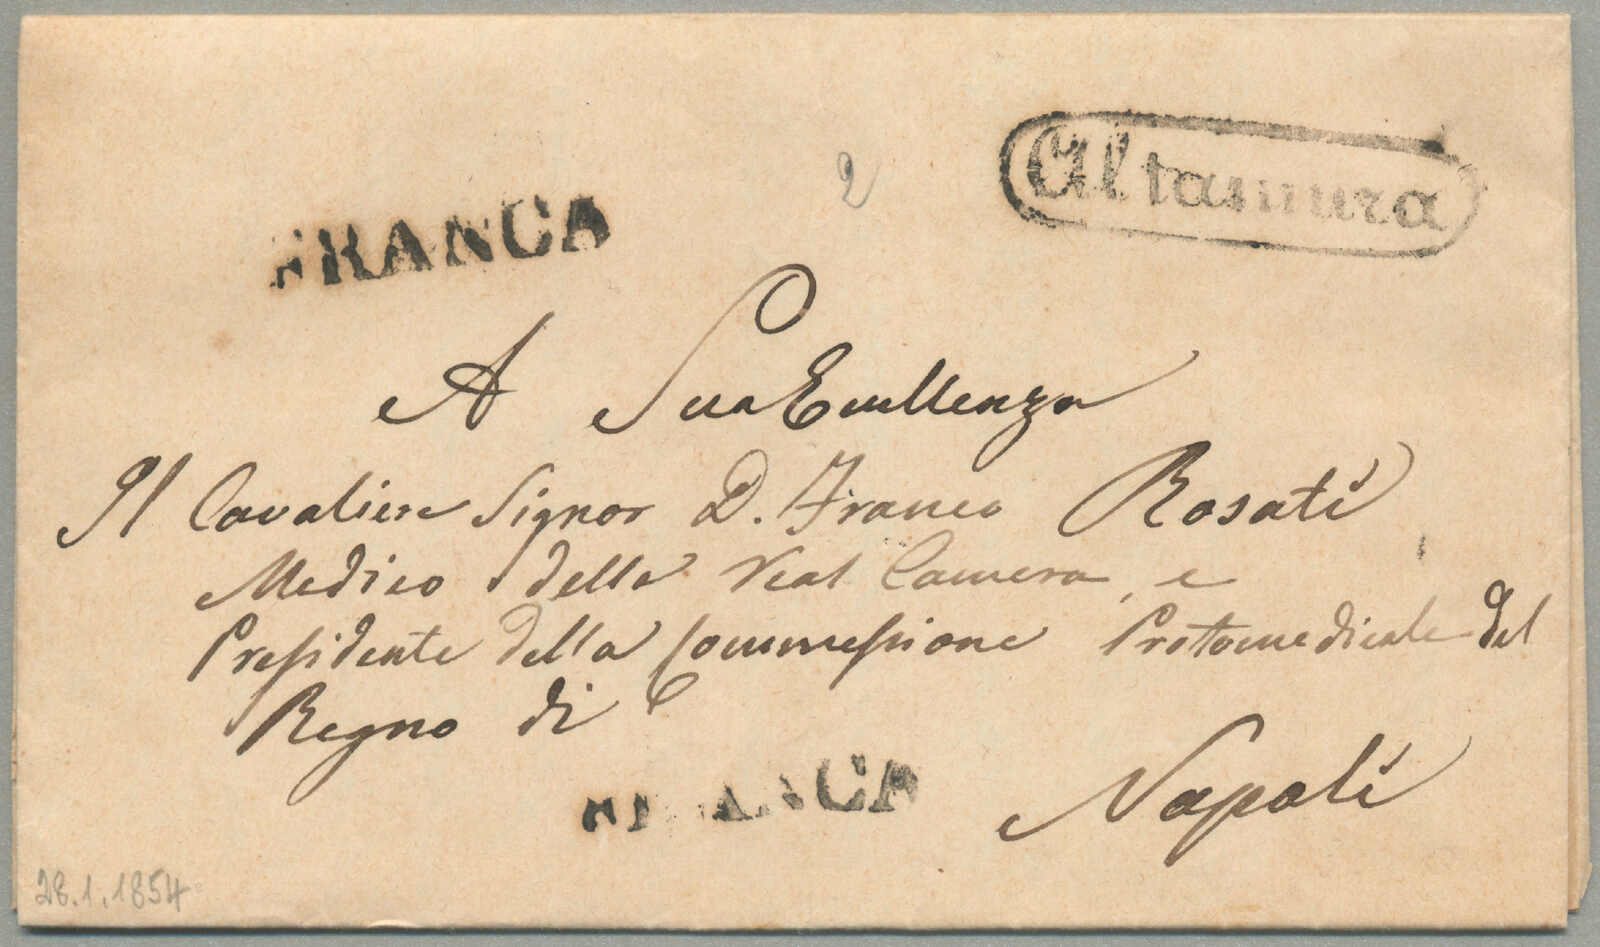 2
Altamura
FRANCA
A Sua Eccellenza
Il Cavaliere Signor D. Franco Rosati
Medico della Real Camera, e
Presidente della Commessione Protomedicale del
Regno di
FRANCA
Napoli
28.1.1854